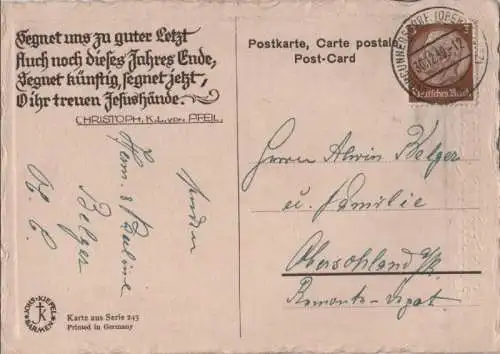 Segnet uns zu guter Letzt
Auch noch dieses Jahres Ende,
Segnet künftig, segnet jetzt,
O ihr treuen Jesushände.
CHRISTOPH. K. L. von PFEIL.
senden
Herm. & Pauline
Belger
Postkarte, Carte postale
Post-Card
30.12.39.-12
Deutsches Reich
3
Herrn Alwin Belger
u. Familie
Obersohland a/R.
JOHS. KIEFEL
BARMEN
Karte aus Serie 243
Printed in Germany